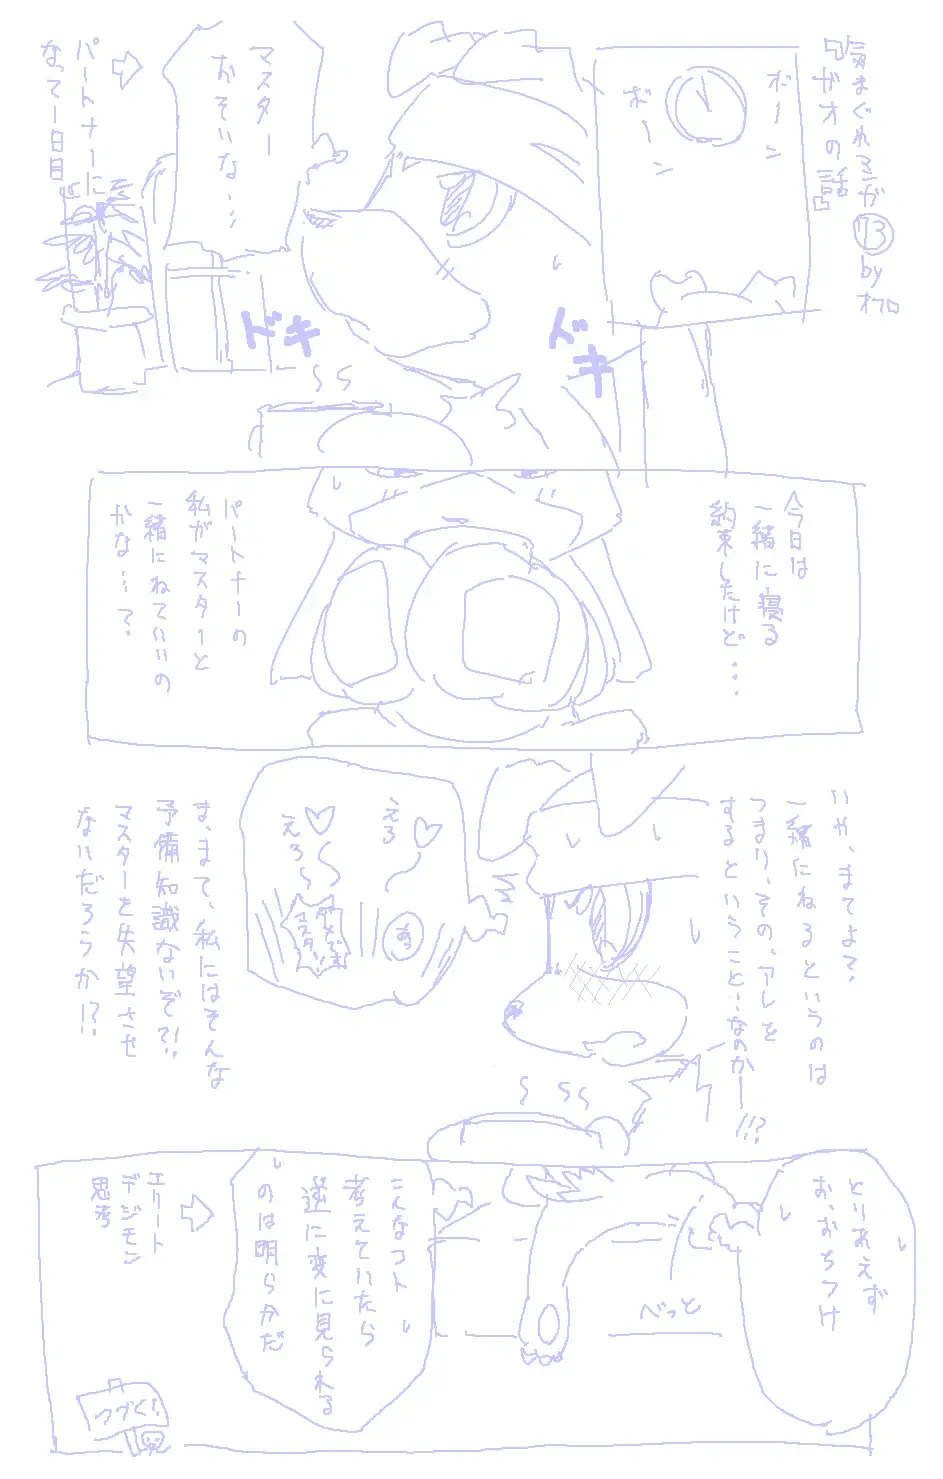 気まぐれマンガ⑬
byオマロ
『ガオの話』
ボーン
ボーン
マスター
おそいな…
パートナーに
なって一日目
ドキ
ドキ
今日は
一緒に寝る
約束したけど…
パートナーの
私がマスターと
一緒にねていいの
かな…て
いや、まてよ?
一緒にねるというのは
つまり、その、アレを
するということ…なのかー!?
えろ
えろ
あっ
マスター
ま、まて、私にはそんな
予備知識ないぞ?!
マスターを失望させ
ないだろうか!?
とりあえず
お、おちつけ
べっと
こんなコト
考えていたら
逆に変に見られる
のは明らかだ
エリート
デジモン
思考
つづく!